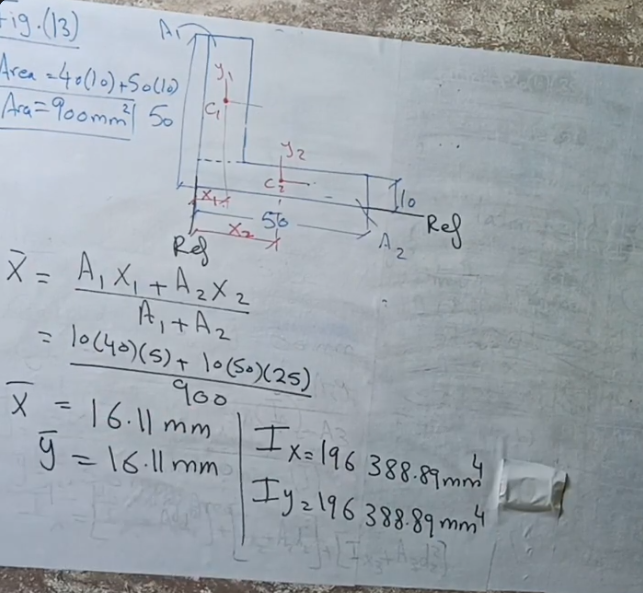 Fig.(13)
Area = 40(10)+50(10)
Ara = 900mm²
A₁
y₁
C₁
50
y₂
C₂
X₁
50
X₂
10
Ref
A₂
Ref
X̄ = A₁X₁ + A₂X₂
A₁ + A₂
= 10(40)(5) + 10(50)(25)
900
X̄ = 16.11 mm
ȳ = 16.11 mm
Ix = 196 388.89 mm⁴
Iy = 196 388.89 mm⁴